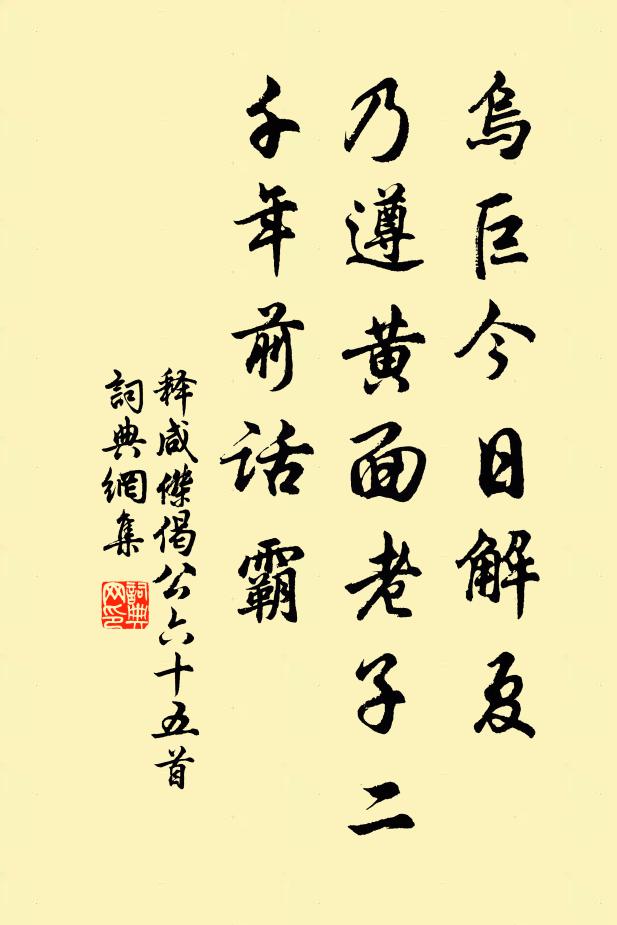 烏巨今日解夏
乃遵黄面老子二
千年前话霸
释咸傑偈公六十五首
詞典網集
詞典
网印